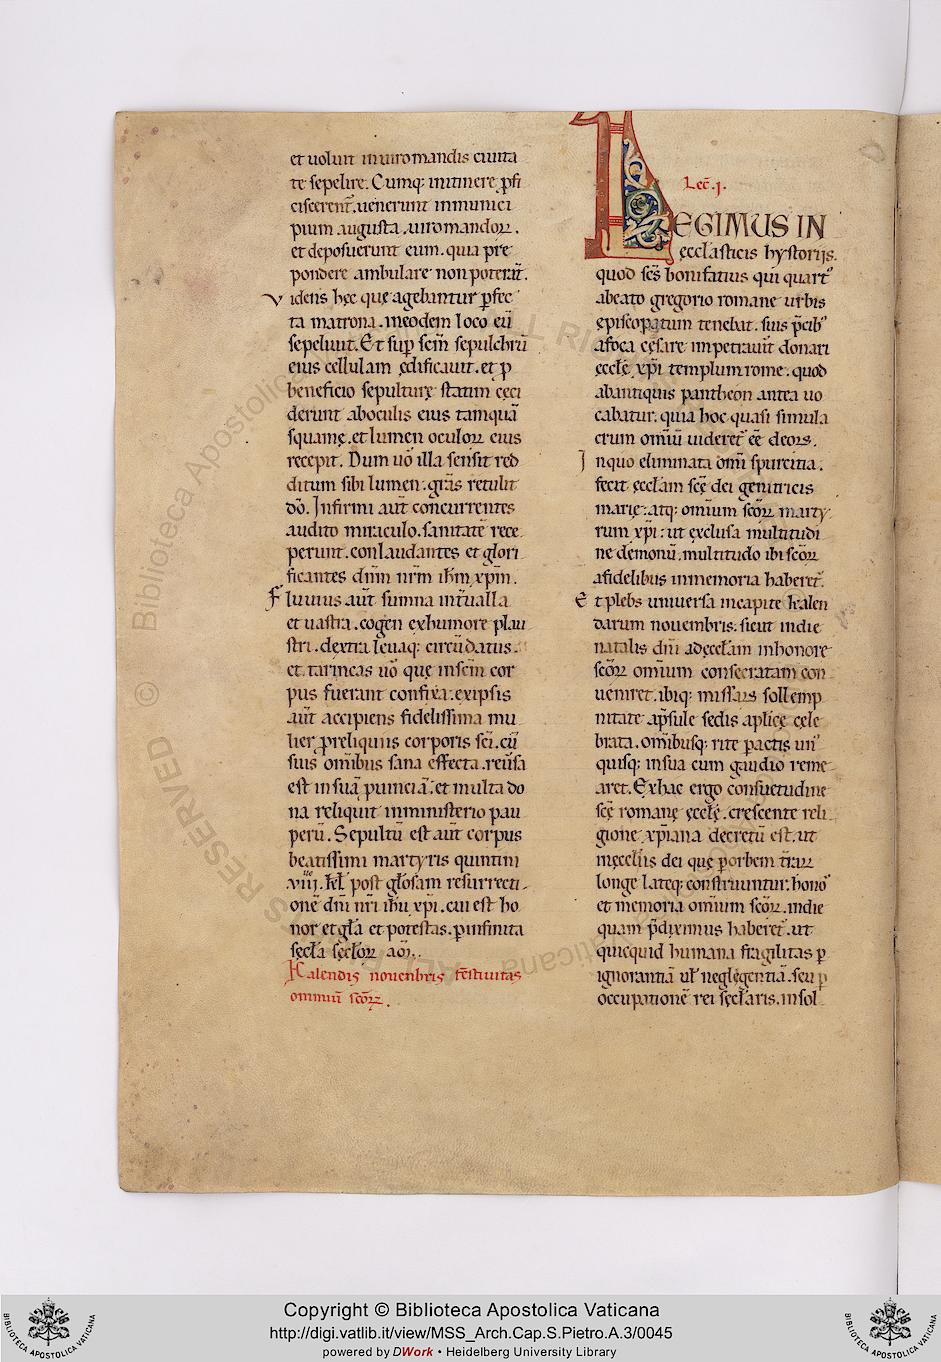 et uoluit in uiromandis ciuita
te sepelire. Cumq; in itinere ꝓfi
ciscerent᷑. uenerunt in munici
pium augusta. uiromandoꝝ.
et deposuerunt eum. quia pre
pondere ambulare non poterāt.
Videns hęc quę agebantur ꝑfec
ta matrona. in eodem loco eū
sepeliuit. Et suꝑ scm̄ sepulchrū
eius cellulam ędificauit. et ꝓ
beneficio sepulturę statim ceci
derunt ab oculis eius tamquā
squamę. et lumen oculoꝝ eius
recepit. Dum uō illa sensit red
ditum sibi lumen. grās retulit
dō. Infirmi aūt concurrentes
audito miraculo. sanitatē rece
perunt. conlaudantes et glori
ficantes dnm̄ nrm̄ ihm̄ xpm̄.
Fluuius aūt summa int̄ualla
et uastra. cogen ex humore plau
stri. dextra leuaq; circūdatus.
et tarincas uō que in scm̄ cor
pus fuerant confixa. ex ipsis
aūt accipiens fidelissima mu
lier ꝓ reliquiis corporis sci. cū
suis omībus sana effecta. reūsa
est in suā ꝓuinciā. et multa do
na reliquit in ministerio pau
perū. Sepultū est aūt corpus
beatissimi martyris quintini
.viij. kl̄ post glōsam resurrecti
onē dnī nrī ihū xpi. cui est ho
nor et glā et potestas. ꝑ infinita
sęcla sęcloꝝ am̄.
Kalendis nouenbris festiuitas
omniū scōꝝ.
Lec̄. j.
LEGIMUS IN
ęcclasticis hystoriis.
quod scs̄ bonifatius qui quart᷒
a beato gregorio romane urbis
episcopatum tenebat. suis p̄cib᷒
a foca cęsare impetrauit donari
ęcclę xpi templum rome. quod
ab antiquis pantheon antea uo
cabatur. quia hoc quasi simula
crum omniū uideret᷑ eē deoꝝ.
In quo eliminata omī spurcitia.
fecit ęcclam scę dei genitricis
marię. atq; omnium scōꝝ marty
rum xpi. ut exclusa multitudi
ne demonū. multitudo ibi scōꝝ
a fidelibus in memoria haberet᷑.
Et plebs uniuersa in capite kalen
darum nouembris. sicut in die
natalis dnī ad ecclam in honore
scōꝝ omnium consecratam con
ueniret. ibiq; missarū sollemp
nitate a p̄sule sedis aplicę cęle
brata. omībusq; rite ꝑactis un᷒
quisq; in sua cum gaudio reme
aret. Ex hac ergo consuetudine
scę romanę ęcclę. crescente reli
gione xpiana decretū est. ut
in ęccliis dei quę ꝑ orbem tr̄arꝝ
longe lateq; construuntur. hono
et memoria omnium scōꝝ. in die
quam p̄diximus haberet᷑. ut
quicquid humana fragilitas ꝑ
ignorantiā ul̄ neglęgentiā. seu ꝑ
occupationē rei sęclaris. in sol
Copyright © Biblioteca Apostolica Vaticana
http://digi.vatlib.it/view/MSS_Arch.Cap.S.Pietro.A.3/0045
powered by DWork • Heidelberg University Library